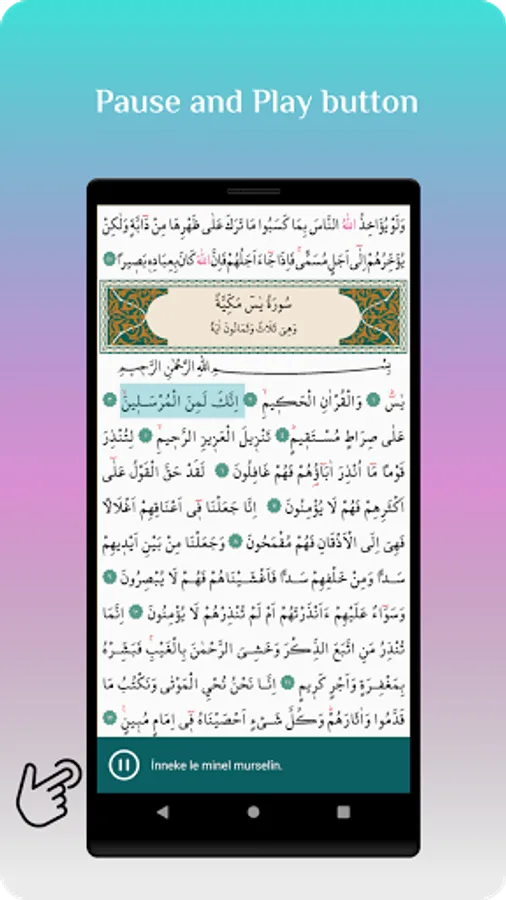 Pause and Play button
وَلَوْ يُؤَاخِذُ اللّٰهُ النَّاسَ بِمَا كَسَبُوا مَا تَرَكَ عَلٰى ظَهْرِهَا مِنْ دَٓابَّةٍ وَلٰكِنْ
يُؤَخِّرُهُمْ اِلٰٓى اَجَلٍ مُسَمًّىۚ فَاِذَا جَٓاءَ اَجَلُهُمْ فَاِنَّ اللّٰهَ كَانَ بِعِبَادِهٖ بَصٖيرًا ﴿٤٥﴾
سُورَةُ يٰسٓ مَكِّيَّةٌ
وَهِيَ ثَلَاثٌ وَثَمَانُونَ اٰيَةً
بِسْمِ اللّٰهِ الرَّحْمٰنِ الرَّحٖيمِ
يٰسٓ ﴿١﴾ وَالْقُرْاٰنِ الْحَكٖيمِۙ ﴿٢﴾ اِنَّكَ لَمِنَ الْمُرْسَلٖينَۙ ﴿٣﴾
عَلٰى صِرَاطٍ مُسْتَقٖيمٍۜ ﴿٤﴾ تَنْزٖيلَ الْعَزٖيزِ الرَّحٖيمِۙ ﴿٥﴾ لِتُنْذِرَ
قَوْمًا مَٓا اُنْذِرَ اٰبَٓاؤُ۬هُمْ فَهُمْ غَافِلُونَ ﴿٦﴾ لَقَدْ حَقَّ الْقَوْلُ عَلٰٓى
اَكْثَرِهِمْ فَهُمْ لَا يُؤْمِنُونَ ﴿٧﴾ اِنَّا جَعَلْنَا فٖٓي اَعْنَاقِهِمْ اَغْلَالًا
فَهِيَ اِلَى الْاَذْقَانِ فَهُمْ مُقْمَحُونَ ﴿٨﴾ وَجَعَلْنَا مِنْ بَيْنِ اَيْدٖيهِمْ
سَدًّا وَمِنْ خَلْفِهِمْ سَدًّا فَاَغْشَيْنَاهُمْ فَهُمْ لَا يُبْصِرُونَ ﴿٩﴾
وَسَوَٓاءٌ عَلَيْهِمْ ءَاَنْذَرْتَهُمْ اَمْ لَمْ تُنْذِرْهُمْ لَا يُؤْمِنُونَ ﴿١٠﴾ اِنَّمَا
تُنْذِرُ مَنِ اتَّبَعَ الذِّكْرَ وَخَشِيَ الرَّحْمٰنَ بِالْغَيْبِۚ فَبَشِّرْهُ
بِمَغْفِرَةٍ وَاَجْرٍ كَرٖيمٍ ﴿١١﴾ اِنَّا نَحْنُ نُحْيِ الْمَوْتٰى وَنَكْتُبُ مَا
قَدَّمُوا وَاٰثَارَهُمْۜ وَكُلَّ شَيْءٍ اَحْصَيْنَاهُ فٖٓي اِمَامٍ مُبٖينٍ۟ ﴿١٢﴾
İnneke le minel murselin.